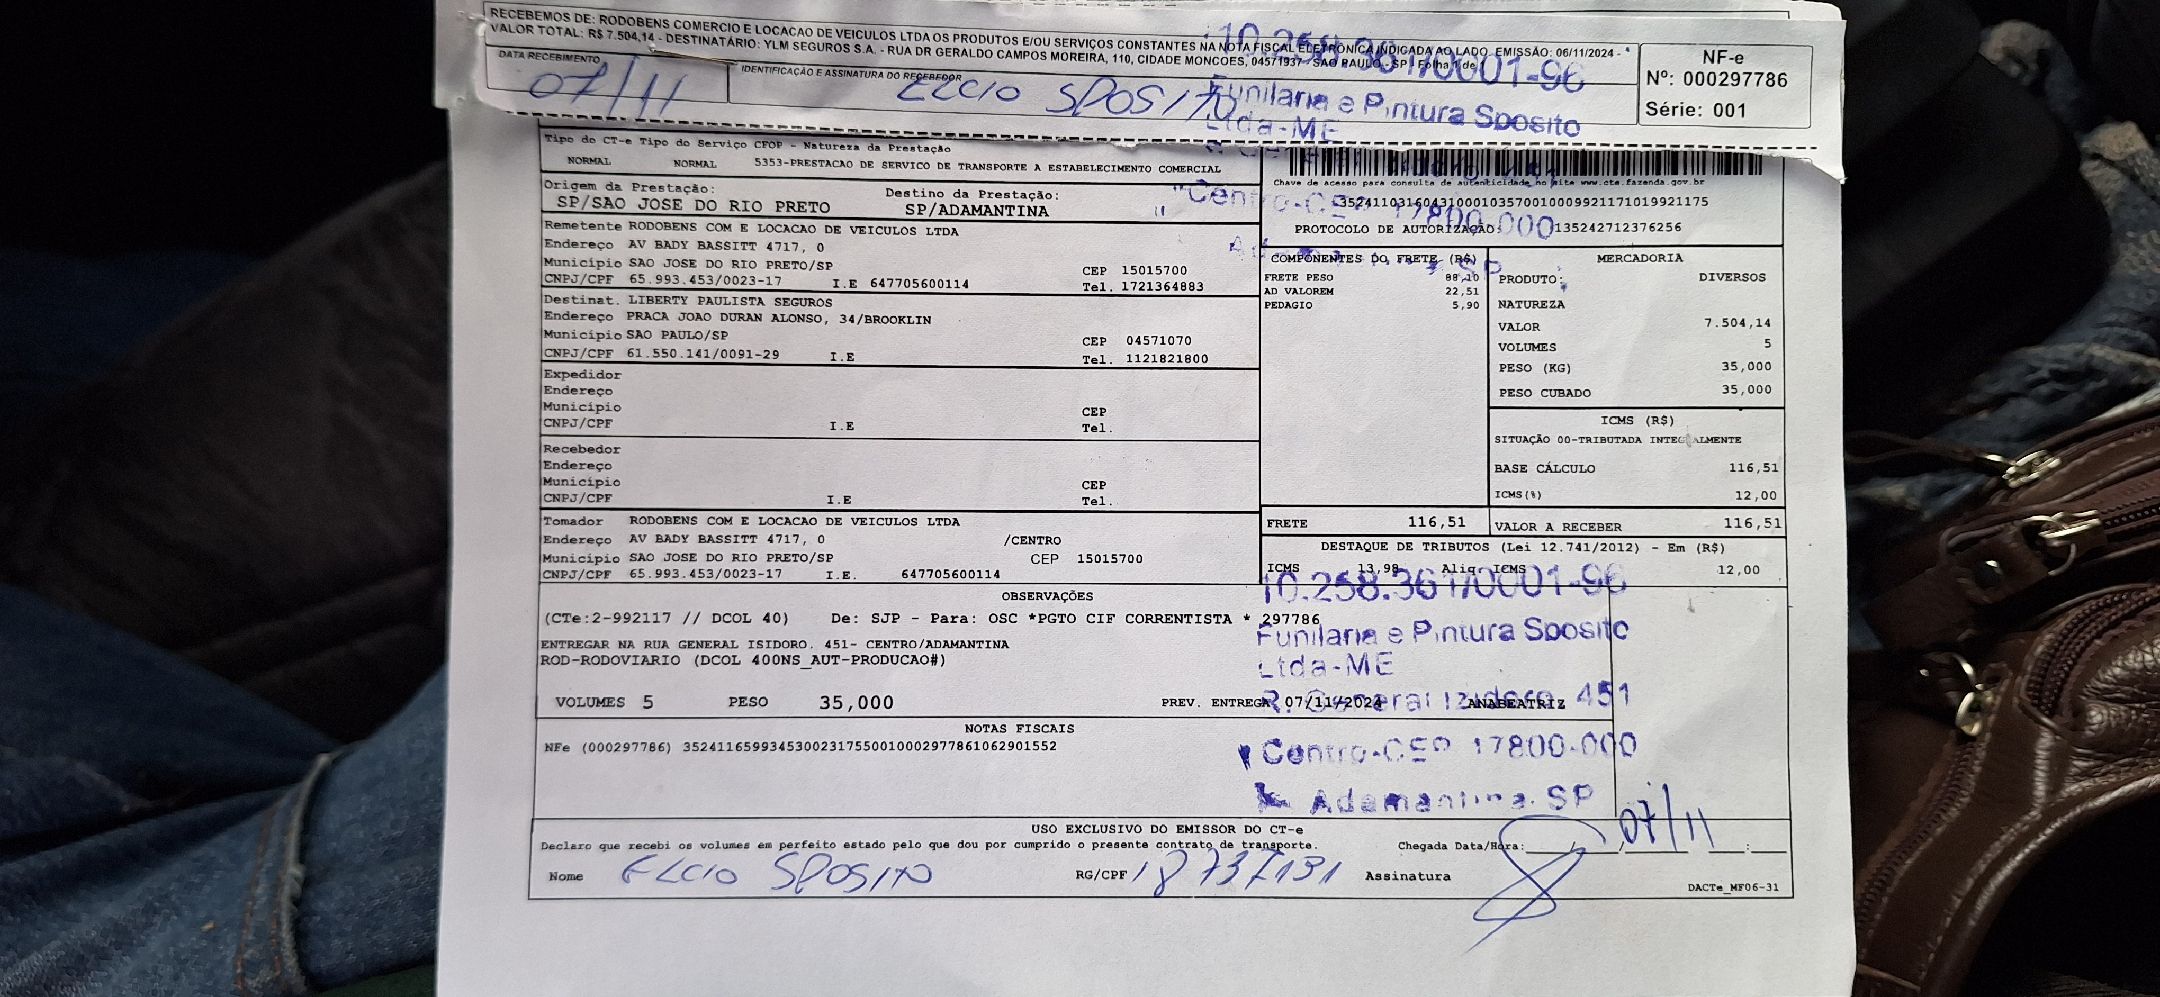 RECEBEMOS DE: RODOBENS COMERCIO E LOCACAO DE VEICULOS LTDA OS PRODUTOS E/OU SERVIÇOS CONSTANTES NA NOTA FISCAL ELETRÔNICA INDICADA AO LADO. EMISSÃO: 06/11/2024 -
VALOR TOTAL: R$ 7.504,14 - DESTINATÁRIO: YLM SEGUROS S.A. - RUA DR GERALDO CAMPOS MOREIRA, 110, CIDADE MONCOES, 04571937 - SAO PAULO - SP | Folha 1 de
DATA RECEBIMENTO
07/11
IDENTIFICAÇÃO E ASSINATURA DO RECEBEDOR
ELCIO SPOSITO
NF-e
Nº: 000297786
Série: 001
10.258.361/0001-96
Funilaria e Pintura Sposito
Ltda-ME
451
Centro-CEP 17800-000
SP
Tipo do CT-e Tipo do Serviço CFOP - Natureza da Prestação
NORMAL NORMAL 5353-PRESTACAO DE SERVICO DE TRANSPORTE A ESTABELECIMENTO COMERCIAL
Origem da Prestação: Destino da Prestação:
SP/SAO JOSE DO RIO PRETO SP/ADAMANTINA
Chave de acesso para consulta de autenticidade no site www.cte.fazenda.gov.br
35241103160431000103570010009921171019921175
PROTOCOLO DE AUTORIZAÇÃO: 135242712376256
Remetente RODOBENS COM E LOCACAO DE VEICULOS LTDA
Endereço AV BADY BASSITT 4717, 0
Município SAO JOSE DO RIO PRETO/SP CEP 15015700
CNPJ/CPF 65.993.453/0023-17 I.E 647705600114 Tel. 1721364883
Destinat. LIBERTY PAULISTA SEGUROS
Endereço PRACA JOAO DURAN ALONSO, 34/BROOKLIN
Município SAO PAULO/SP CEP 04571070
CNPJ/CPF 61.550.141/0091-29 I.E Tel. 1121821800
Expedidor
Endereço
Município CEP
CNPJ/CPF I.E Tel.
Recebedor
Endereço
Município CEP
CNPJ/CPF I.E Tel.
Tomador RODOBENS COM E LOCACAO DE VEICULOS LTDA
Endereço AV BADY BASSITT 4717, 0 /CENTRO
Município SAO JOSE DO RIO PRETO/SP CEP 15015700
CNPJ/CPF 65.993.453/0023-17 I.E. 647705600114
COMPONENTES DO FRETE (R$)
FRETE PESO 88,10
AD VALOREM 22,51
PEDAGIO 5,90
MERCADORIA
PRODUTO: DIVERSOS
NATUREZA
VALOR 7.504,14
VOLUMES 5
PESO (KG) 35,000
PESO CUBADO 35,000
ICMS (R$)
SITUAÇÃO 00-TRIBUTADA INTEGRALMENTE
BASE CÁLCULO 116,51
ICMS(%) 12,00
FRETE 116,51 VALOR A RECEBER 116,51
DESTAQUE DE TRIBUTOS (Lei 12.741/2012) - Em (R$)
ICMS 13,98 Aliq. ICMS 12,00
OBSERVAÇÕES
(CTe:2-992117 // DCOL 40) De: SJP - Para: OSC *PGTO CIF CORRENTISTA * 297786
ENTREGAR NA RUA GENERAL ISIDORO. 451- CENTRO/ADAMANTINA
ROD-RODOVIARIO (DCOL 400NS_AUT-PRODUCAO#)
VOLUMES 5 PESO 35,000 PREV. ENTREGA 07/11/2024 ANABEATRIZ
10.258.361/0001-96
Funilaria e Pintura Sposito
Ltda-ME
R. General Izidoro 451
Centro-CEP 17800-000
Adamantina SP
NOTAS FISCAIS
NFe (000297786) 35241165993453002317550010002977861062901552
USO EXCLUSIVO DO EMISSOR DO CT-e
Declaro que recebi os volumes em perfeito estado pelo que dou por cumprido o presente contrato de transporte. Chegada Data/Hora: 07/11
Nome ELCIO SPOSITO RG/CPF 18737131 Assinatura
DACTe_MF06-31